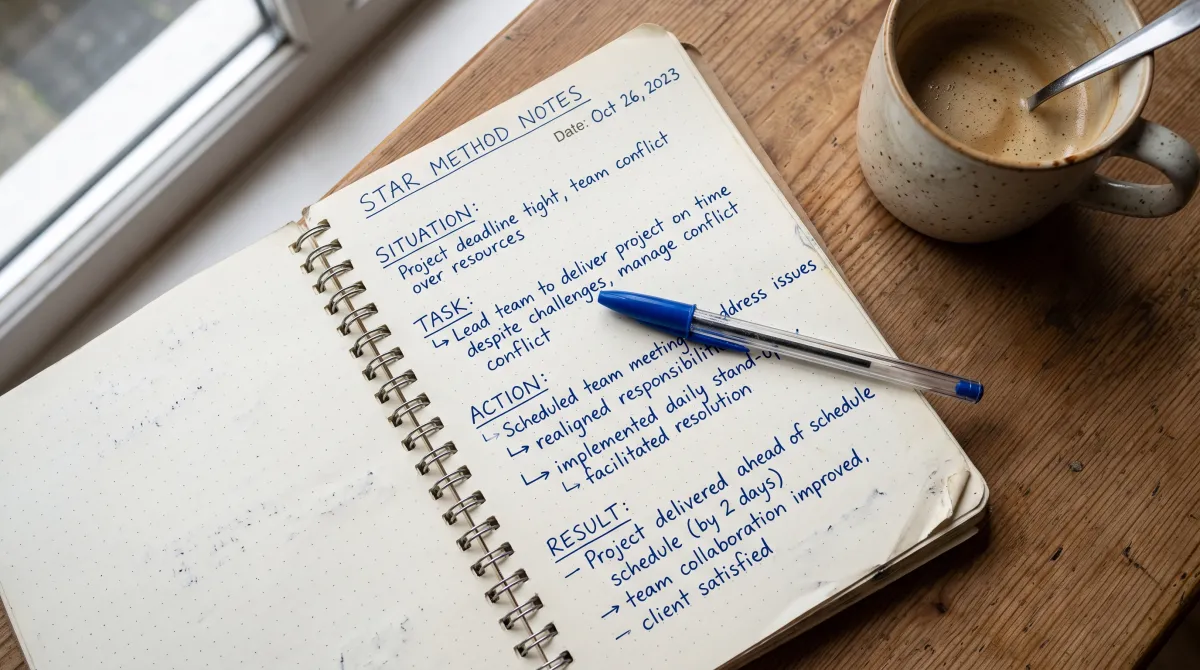 STAR METHOD NOTES
Date: Oct 26, 2023
SITUATION:
Project deadline tight, team conflict
over resources
TASK:
↳ Lead team to deliver project on time
despite challenges, manage conflict
conflict
ACTION:
↳ Scheduled team meeting address issues
↳ realigned
↳ implemented daily
↳ facilitated resolution
RESULT:
– Project delivered ahead of schedule
schedule (by 2 days)
→ team collaboration improved,
– client satisfied